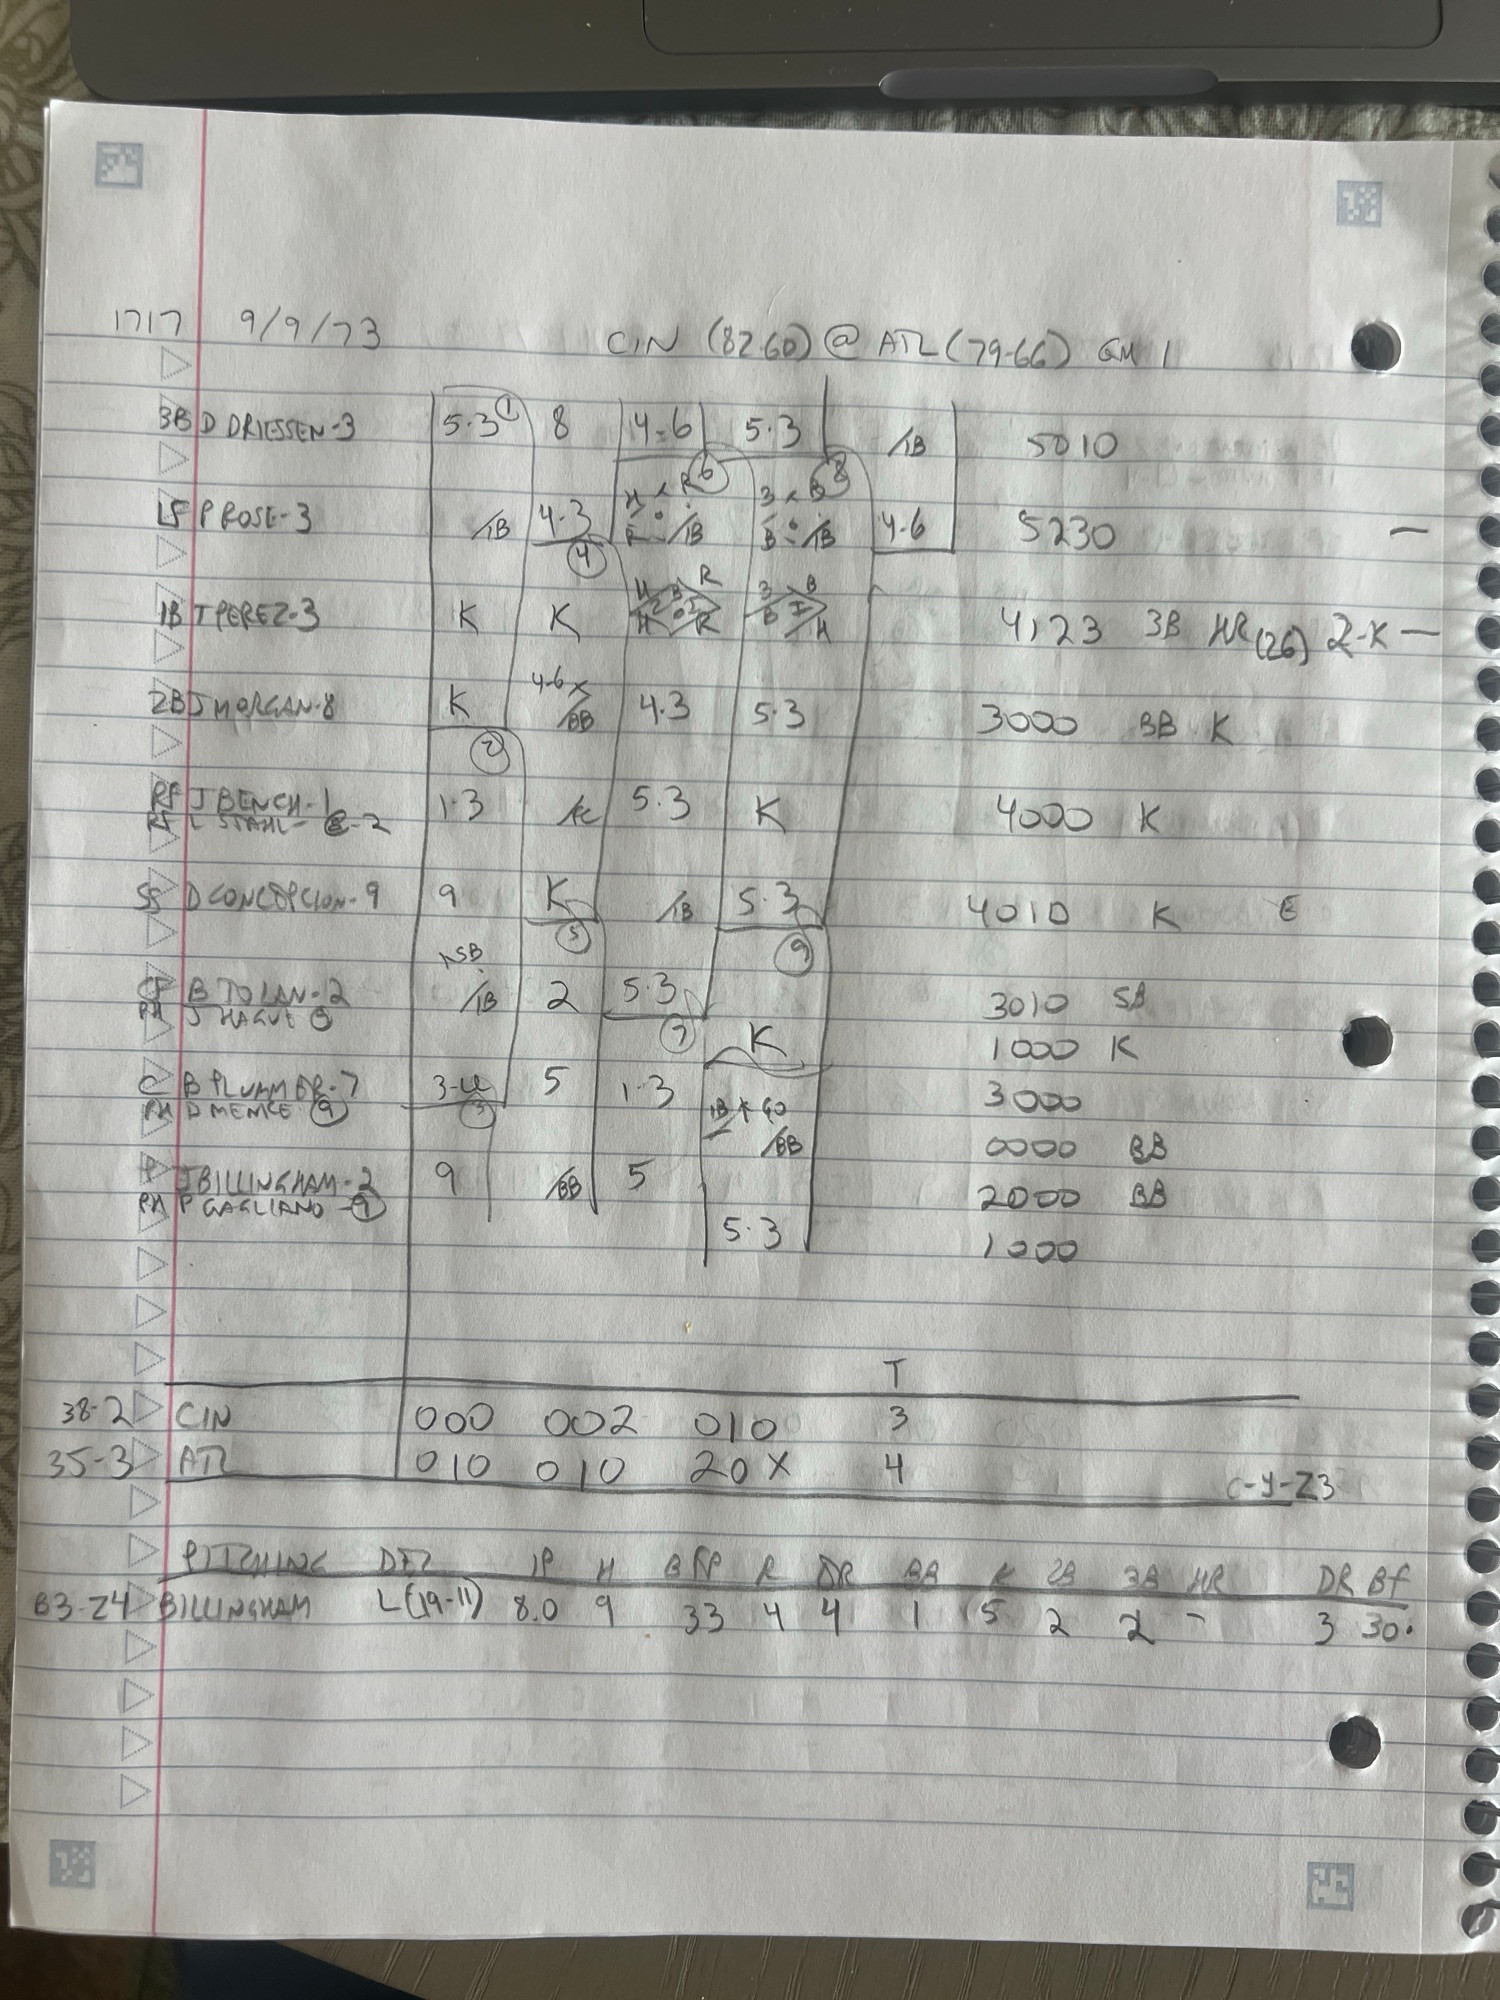 1717 9/9/73 CIN (82-60) @ ATL (79-66) GM 1
3B D DRIESSEN-3 5.3 ① 8 4-6 5.3 /1B 5010
LF P ROSE-3 /1B 4.3 ④ /1B ⑥ /1B ⑧ 4-6 5230 —
1B T PEREZ-3 K K 4123 3B HR (26) 2-K —
2B J MORGAN-8 K ② 4-6 x /BB 4.3 5.3 3000 BB K
RF J BENCH-1 1.3 5.3 K 4000 K
RF L STAHL- 2
SS D CONCEPCION-9 9 K ⑤ /1B 5.3 ⑨ 4010 K E
CF B TOLAN-2 SB /1B 2 5.3 ⑦ 3010 SB
PH J HAGUE K 1000 K
C B PLUMMER-7 3-U ③ 5 1.3 3000
PH D MENKE ⑨ /BB 0000 BB
P J BILLINGHAM-2 9 /BB 5 2000 BB
PH P GAGLIANO-⑨ 5.3 1000
T
38-2 CIN 000 002 010 3
35-3 ATL 010 010 20X 4
C-Y-Z3
PITCHING IP H BFP R BB K 2B 3B HR DR BF
B3-Z4 BILLINGHAM L(19-11) 8.0 9 33 4 4 1 5 2 2 - 3 30.